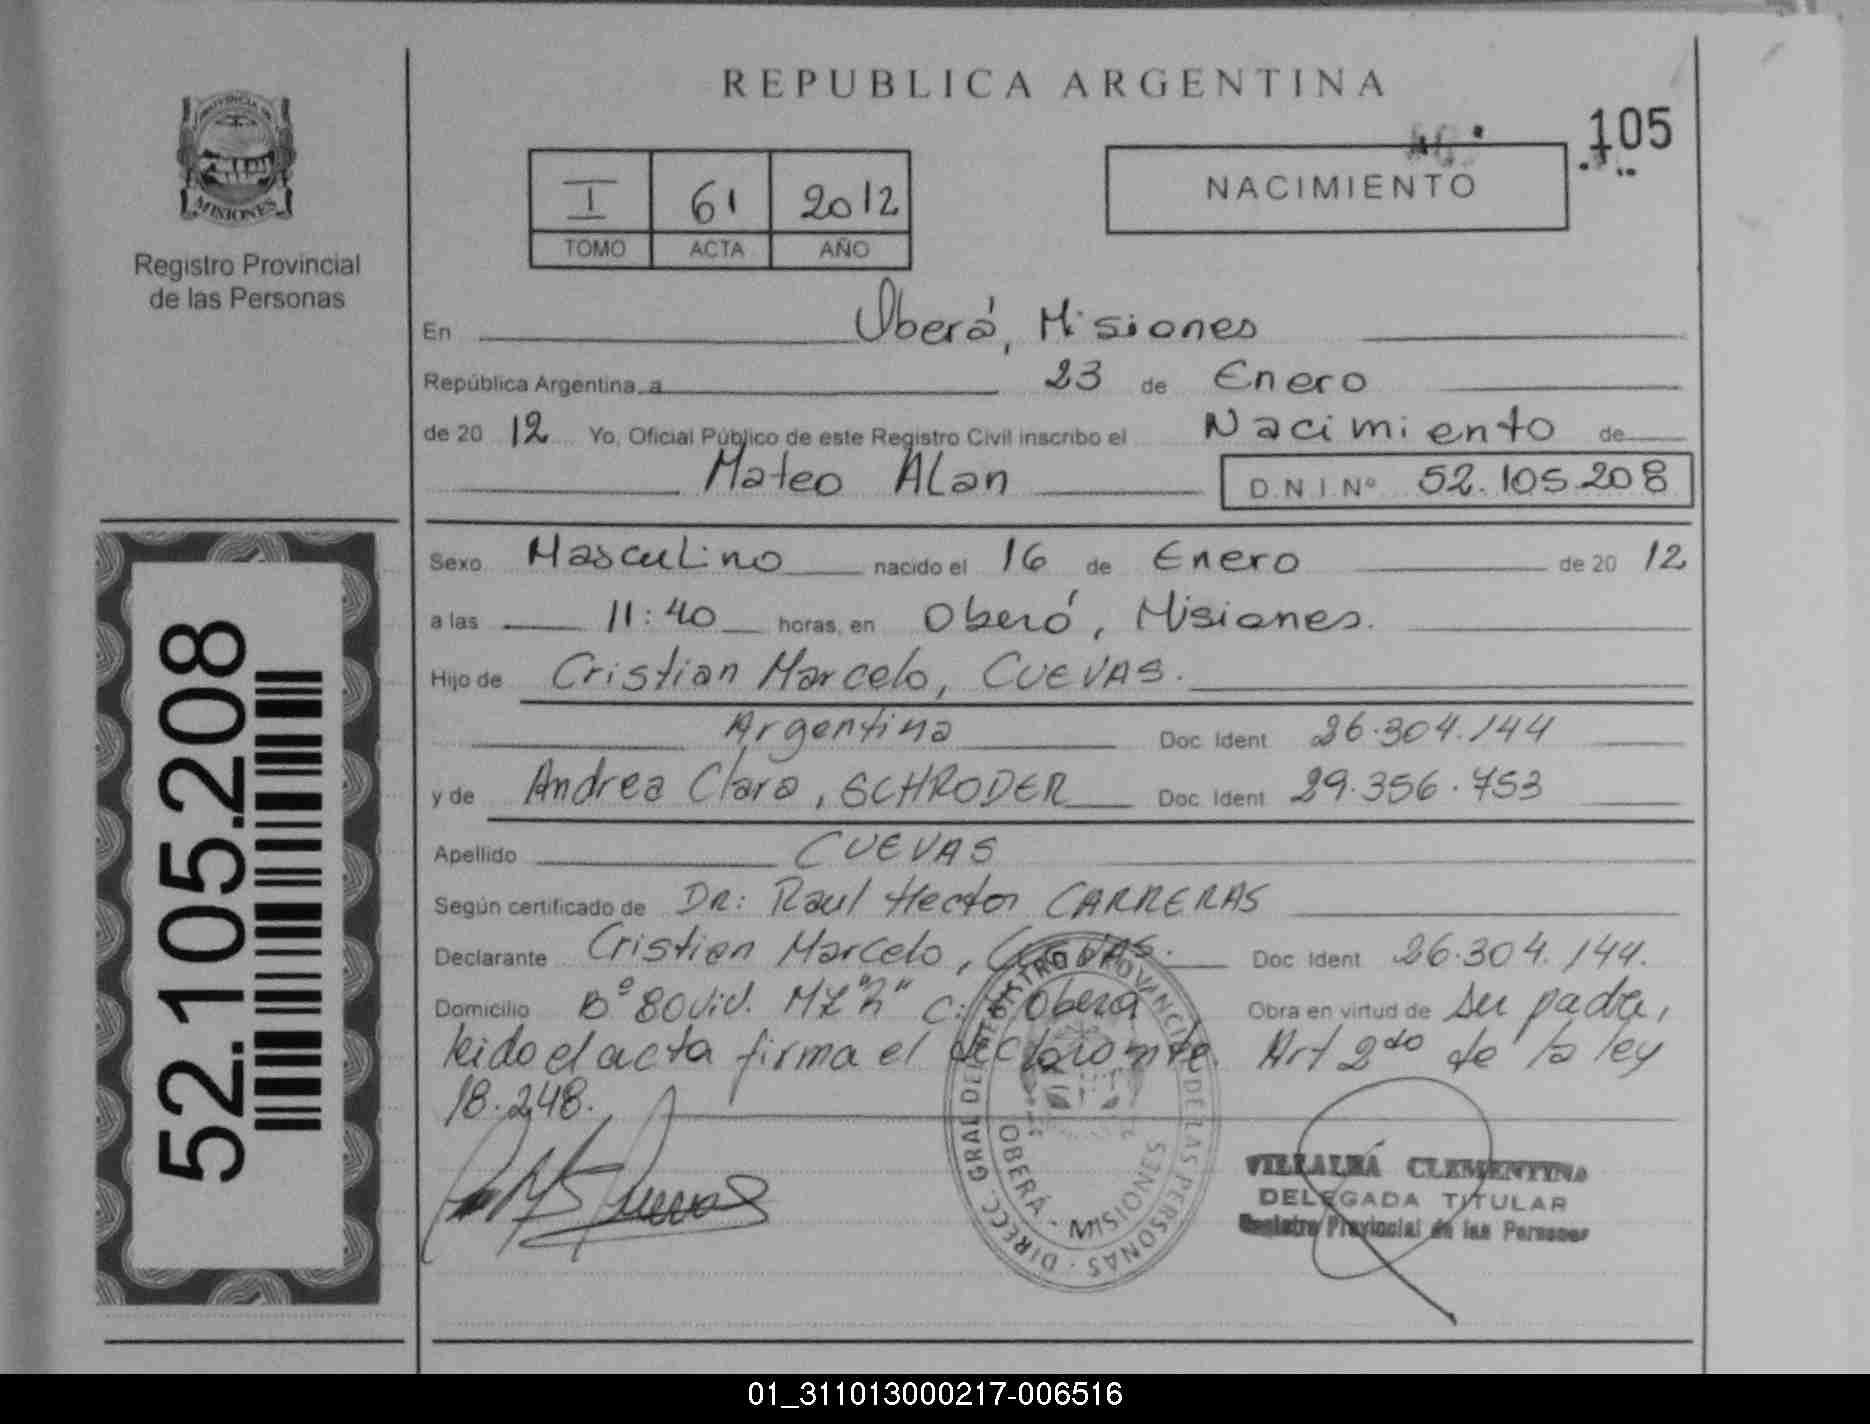 REPUBLICA ARGENTINA
105
PROVINCIA DE
MISIONES
Registro Provincial
de las Personas
I 61 2012
TOMO ACTA AÑO
NACIMIENTO
En Oberá, Misiones
República Argentina, a 23 de Enero
de 20 12 Yo, Oficial Público de este Registro Civil inscribo el Nacimiento de
Mateo Alan D.N.I. Nº 52.105.208
Sexo Masculino nacido el 16 de Enero de 20 12
a las 11:40 horas, en Oberá, Misiones.
Hijo de Cristian Marcelo, CUEVAS.
Argentina Doc. Ident. 26.304.144
y de Andrea Clara, SCHRODER Doc. Ident. 29.356.753
Apellido CUEVAS
Según certificado de DR: Raul Hector CARRERAS
Declarante Cristian Marcelo, CUEVAS. Doc. Ident. 26.304.144.
Domicilio Bº 80 viv. Mz C: Oberá Obra en virtud de su padre,
leido el acta firma el declarante. Art 2do de la ley
18.248.
DIRECC. GRAL DEL REGISTRO PROVINCIAL DE LAS PERSONAS
OBERÁ - MISIONES
VILLALBA CLEMENTINA
DELEGADA TITULAR
Registro Provincial de las Personas
52.105.208
01_311013000217-006516